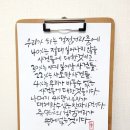 우리가 하는 걱정거리의
40%는 절대 일어나지 않을
사건들에 대한 것이고
30%는 이미 일어난 사건들
22%는 사소한 사건들
4%는 우리가 바꿀 수 없는
사건들에 대한 것이다
나머지 4%만이 우리가
대처할 수 있는 진짜 사건이다
즉 96%의 걱정거리가
쓸데없는 것이다